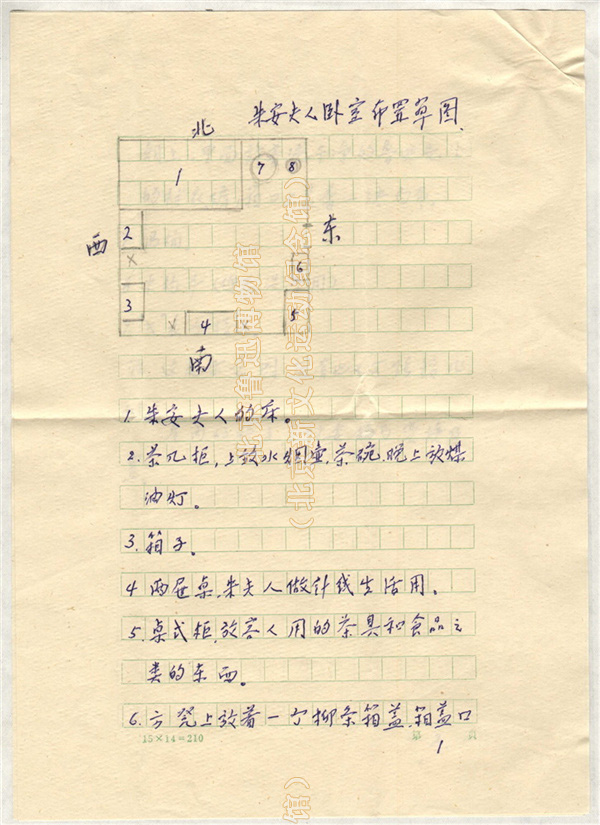 朱安夫人卧室布置草图
北
1
7
8
2
西
东
6
3
4
5
南
1.朱安夫人的床。
2.茶几柜,上放水烟壶,茶碗,晚上放煤
油灯。
3.箱子。
4 两屉桌,朱夫人做针线生活用。
5.桌式柜,放客人用的茶具和食品之
类的东西。
6.方凳上放着一个柳条箱盖,箱盖口
15×14=210
第 页
1
北京鲁迅博物馆
(北京新文化运动纪念馆)
馆)